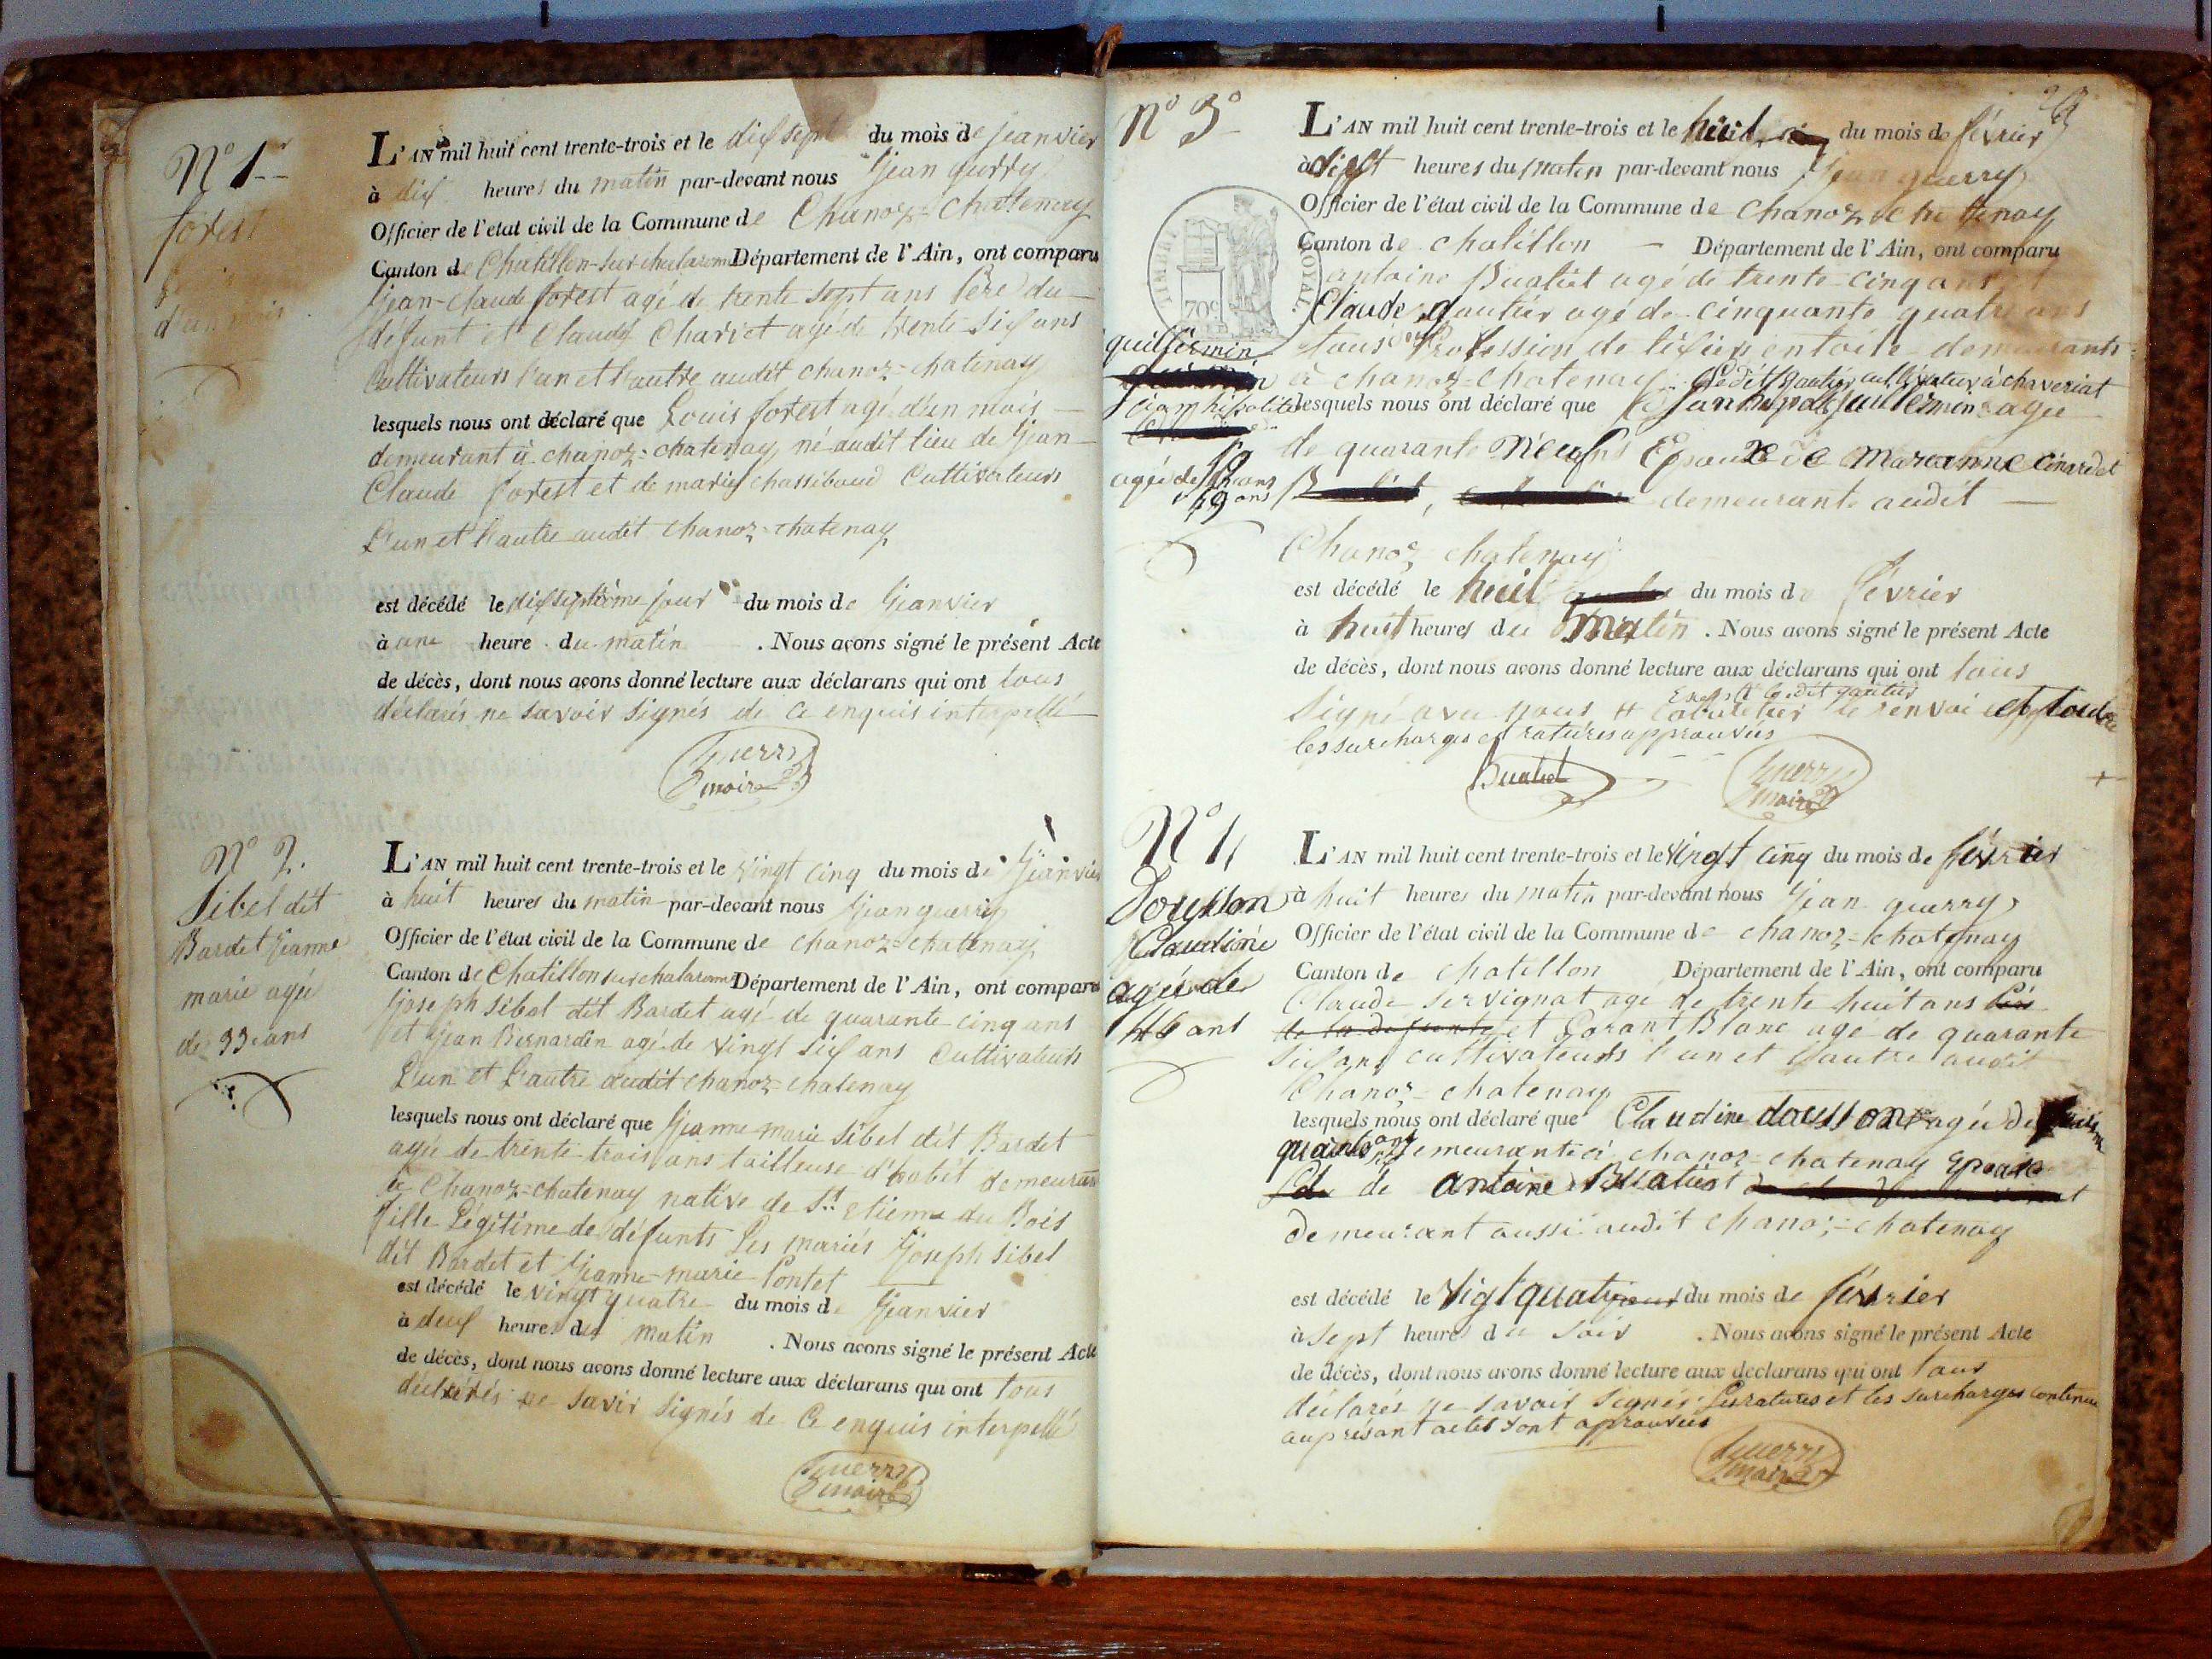 N° 1er
forest
d'un mois
L'AN mil huit cent trente-trois et le dix sept du mois de Jeanvier
à dix heures du matin par-devant nous Jean querry
Officier de l'etat civil de la Commune de Chanoz=Chatenay
Canton de Chatillon-sur-chalaronne Département de l'Ain, ont comparu
Jean-Claude forest agé de trente sept ans Père du
défunt et Claude Charvet agé de trente-six ans
Cultivateurs l'un et l'autre audit chanoz=chatenay
lesquels nous ont déclaré que Louis forest agé d'un mois
demeurant à chanoz=chatenay né audit lieu de Jean
Claude forest et de marie chassibaud Cultivateurs
L'un et l'autre audit chanoz=chatenay
est décédé le dixseptième jour du mois de Jeanvier
à une heure du matin . Nous avons signé le présent Acte
de décès, dont nous avons donné lecture aux déclarans qui ont tous
déclarés ne savoir signés de ce enquis interpellé
Guerry
maire
N° 2.
Sibel dit
Bardet Jeanne
marie agée
de 33 ans
L'AN mil huit cent trente-trois et le vingt cinq du mois de Jeanvier
à huit heures du matin par-devant nous Jean querry
Officier de l'état civil de la Commune de chanoz=chatenay
Canton de Chatillon sur chalaronne Département de l'Ain, ont comparu
Joseph Sibel dit Bardet agé de quarante-cinq ans
et Jean Bernardin agé de vingt six ans Cultivateurs
L'un et L'autre audit chanoz=chatenay
lesquels nous ont déclaré que Jeanne-marie Sibel dit Bardet
agée de trente trois ans tailleuse d'habit demeurant
à Chanoz=chatenay native de St. etienne du Bois
fille Légitime de défunts Les mariés Joseph Sibel
dit Bardet et Jeanne-marie Pontet
est décédé le vingt quatre du mois de Jeanvier
à deux heures du matin . Nous avons signé le présent Acte
de décès, dont nous avons donné lecture aux déclarans qui ont tous
déclarés ne savir signés de Ce enquis interpellé
Guerry
maire
N° 3°
L'AN mil huit cent trente-trois et le huit du mois de février
à heures du matin par-devant nous Jean querry
Officier de l'état civil de la Commune de chanoz chatenay
Canton de chatillon Département de l'Ain, ont comparu
TIMBRE ROYAL
70c
antoine Buatiet agé de trente-cinq ans
Claude gautier agé de cinquante quatre ans
tous Profession de tixier en toile demeurants
à chanoz=chatenay. Ledit gautier cultivateur à chaveriat
guillermin
hipolite
agée de
49 ans
lesquels nous ont déclaré que guillermin agée
de quarante neuf ans Epouxe de marianne
demeurante audit
Chanoz chatenay
est décédé le huit du mois de février
à huit heures du matin . Nous avons signé le présent Acte
de décès, dont nous avons donné lecture aux déclarans qui ont tous
Excepté ledit gautier
Signé avec nous le renvoi et toutes
les surcharges et ratures approuvées
Buatiet
Guerry
maire
N° 4
Dousson
Claudine
agée de
46 ans
L'AN mil huit cent trente-trois et le vingt cinq du mois de février
à huit heures du matin par-devant nous Jean querry
Officier de l'état civil de la Commune de chanoz=chatenay
Canton de chatillon Département de l'Ain, ont comparu
Claude Servignat agé de trente huit ans
de la defunte et Lorant Blanc agé de quarante
six ans cultivateurs l'un et l'autre audit
Chanoz=chatenay
lesquels nous ont déclaré que Claudine dousson agée de
quarante six ans demeurante à chanoz=chatenay Epouse
de antoine Buatiet
demeurant aussi audit chanoz=chatenay
est décédé le vigt quatre jour du mois de février
à sept heures du soir . Nous avons signé le présent Acte
de décès, dont nous avons donné lecture aux declarans qui ont tous
déclarés ne savoir signés. Les ratures et les surcharges contenue
au présant actes sont approuvées
Guerry
maire